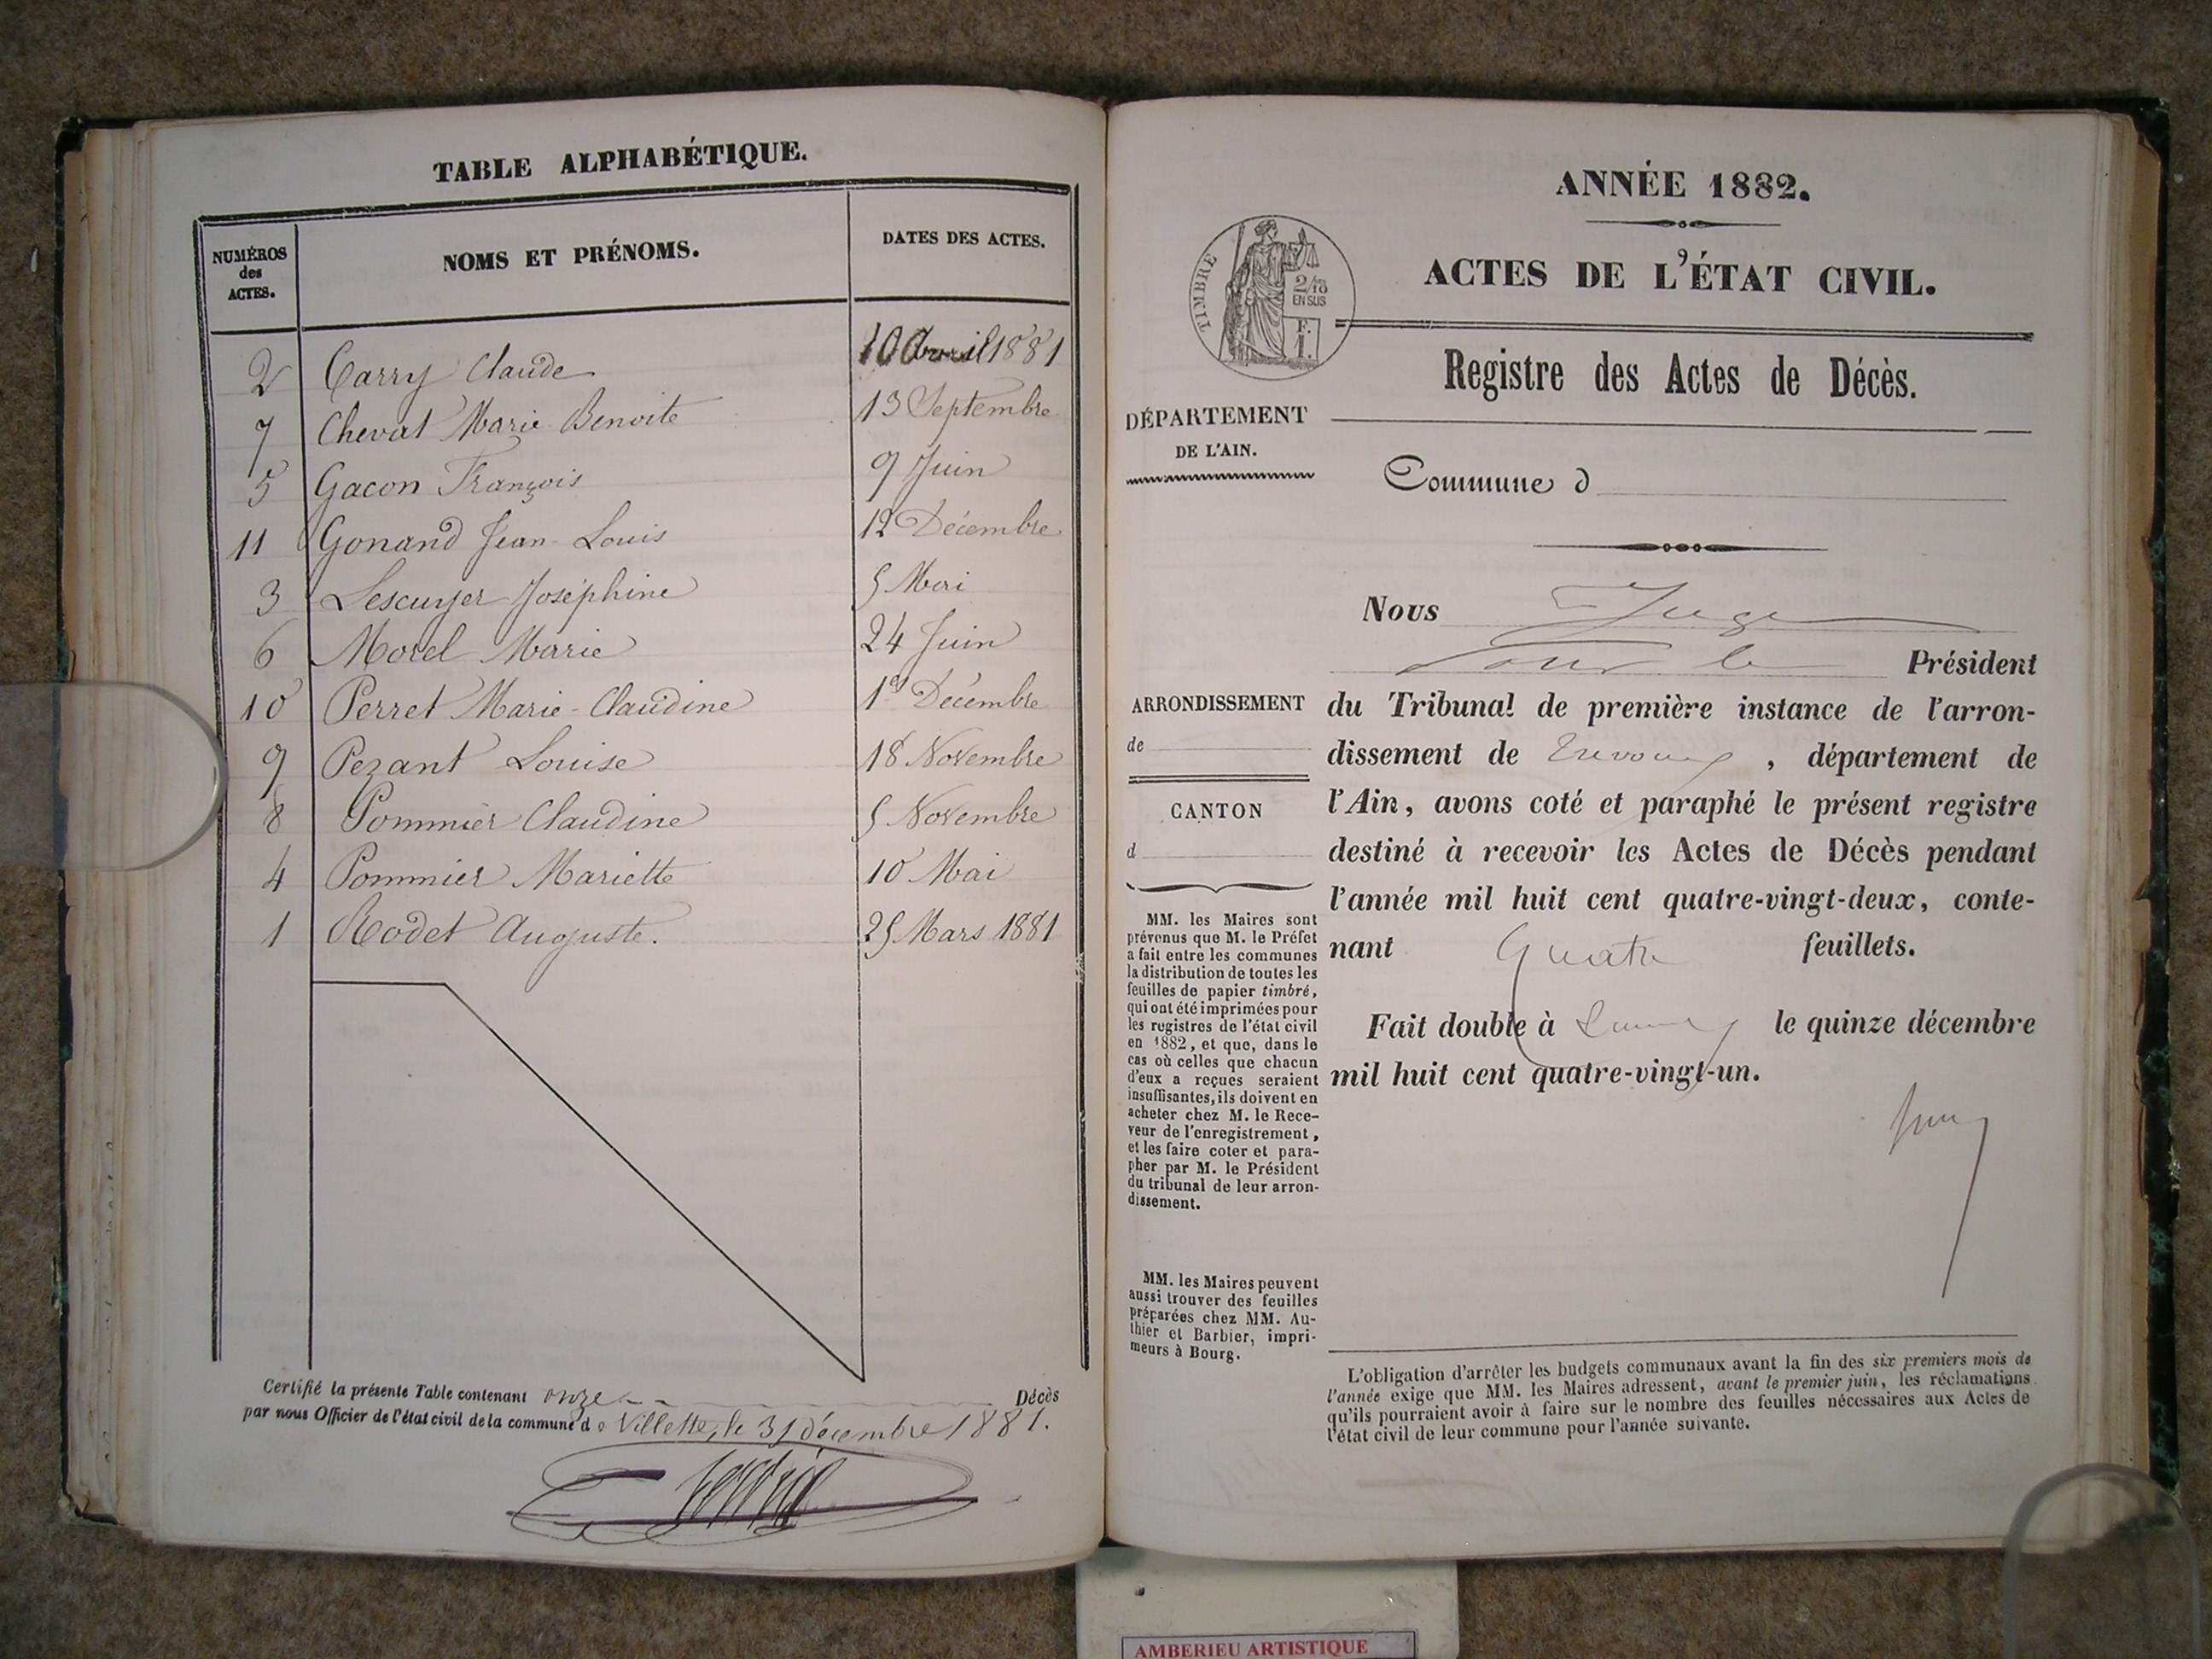 TABLE ALPHABÉTIQUE.
NUMÉROS des ACTES. NOMS ET PRÉNOMS. DATES DES ACTES.
2 Carry Claude 10 Avril 1881
7 Chevat Marie Benoite 13 Septembre
5 Gacon François 9 Juin
11 Gonand Jean-Louis 12 Décembre
3 Lescuyer Joséphine 5 Mai
6 Morel Marie 24 Juin
10 Perret Marie-Claudine 1er Décembre
9 Pezant Louise 18 Novembre
8 Pommier Claudine 5 Novembre
4 Pommier Mariette 10 Mai
1 Rodet Auguste. 25 Mars 1881
Certifié la présente Table contenant onze Décès
par nous Officier de l'état civil de la commune de Villette, le 31 décembre 1881.
ANNÉE 1882.
ACTES DE L'ÉTAT CIVIL.
TIMBRE
2/10
EN SUS
F.
1.
Registre des Actes de Décès.
DÉPARTEMENT
DE L'AIN.
Commune d
Nous Juge
Pour le Président
ARRONDISSEMENT
de
CANTON
d
du Tribunal de première instance de l'arron-
dissement de Trevoux, département de
l'Ain, avons coté et paraphé le présent registre
destiné à recevoir les Actes de Décès pendant
l'année mil huit cent quatre-vingt-deux, conte-
nant Quatre feuillets.
Fait double à le quinze décembre
mil huit cent quatre-vingt-un.
MM. les Maires sont
prévenus que M. le Préfet
a fait entre les communes
la distribution de toutes les
feuilles de papier timbré,
qui ont été imprimées pour
les registres de l'état civil
en 1882, et que, dans le
cas où celles que chacun
d'eux a reçues seraient
insuffisantes, ils doivent en
acheter chez M. le Rece-
veur de l'enregistrement,
et les faire coter et para-
pher par M. le Président
du tribunal de leur arron-
dissement.
MM. les Maires peuvent
aussi trouver des feuilles
préparées chez MM. Au-
thier et Barbier, impri-
meurs à Bourg.
L'obligation d'arrêter les budgets communaux avant la fin des six premiers mois de
l'année exige que MM. les Maires adressent, avant le premier juin, les réclamations
qu'ils pourraient avoir à faire sur le nombre des feuilles nécessaires aux Actes de
l'état civil de leur commune pour l'année suivante.
AMBERIEU ARTISTIQUE